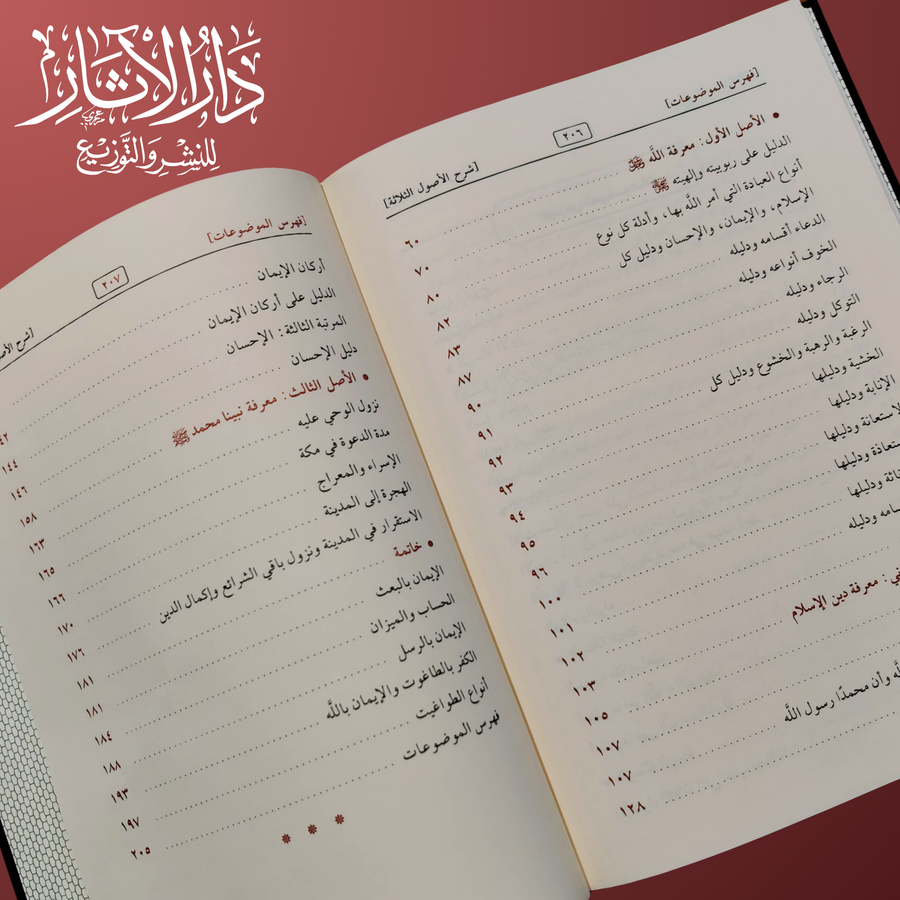 دار الآثار
للنشر والتوزيع
[فهرس الموضوعات] ٢٠٦ [شرح الأصول الثلاثة]
• الأصل الأول: معرفة الله ﷻ ٦٠
الدليل على ربوبيته وإلهيته ﷻ ٧٠
أنواع العبادة التي أمر الله بها، وأدلة كل نوع ٨٠
الإسلام، والإيمان، والإحسان ودليل كل ٨٢
الدعاء أقسامه ودليله ٨٣
الخوف أنواعه ودليله ٨٧
الرجاء ودليله ٩٠
التوكل ودليله ٩١
الرغبة والرهبة والخشوع ودليل كل ٩٢
الخشية ودليلها ٩٣
الإنابة ودليلها ٩٤
ودليلها ٩٥
ودليلها ٩٦
ودليلها ١٠٠
ودليله ١٠١
١٠٢
معرفة دين الإسلام ١٠٣
١٠٥
١٠٧
وأن محمدًا رسول الله ١٠٧
١٢٨
[فهرس الموضوعات] ٢٠٧
أركان الإيمان
الدليل على أركان الإيمان
المرتبة الثالثة: الإحسان ١٤٤
دليل الإحسان ١٤٦
• الأصل الثالث: معرفة نبينا محمد ﷺ ١٥٨
نزول الوحي عليه ١٦٣
مدة الدعوة في مكة ١٦٥
الإسراء والمعراج ١٦٦
الهجرة إلى المدينة ١٧٠
الاستقرار في المدينة ونزول باقي الشرائع وإكمال الدين ١٧٦
• خاتمة ١٨١
الإيمان بالبعث ١٨١
الحساب والميزان ١٨٤
الإيمان بالرسل ١٨٨
الكفر بالطاغوت والإيمان بالله ١٩٣
أنواع الطواغيت ١٩٧
فهرس الموضوعات ٢٠٥